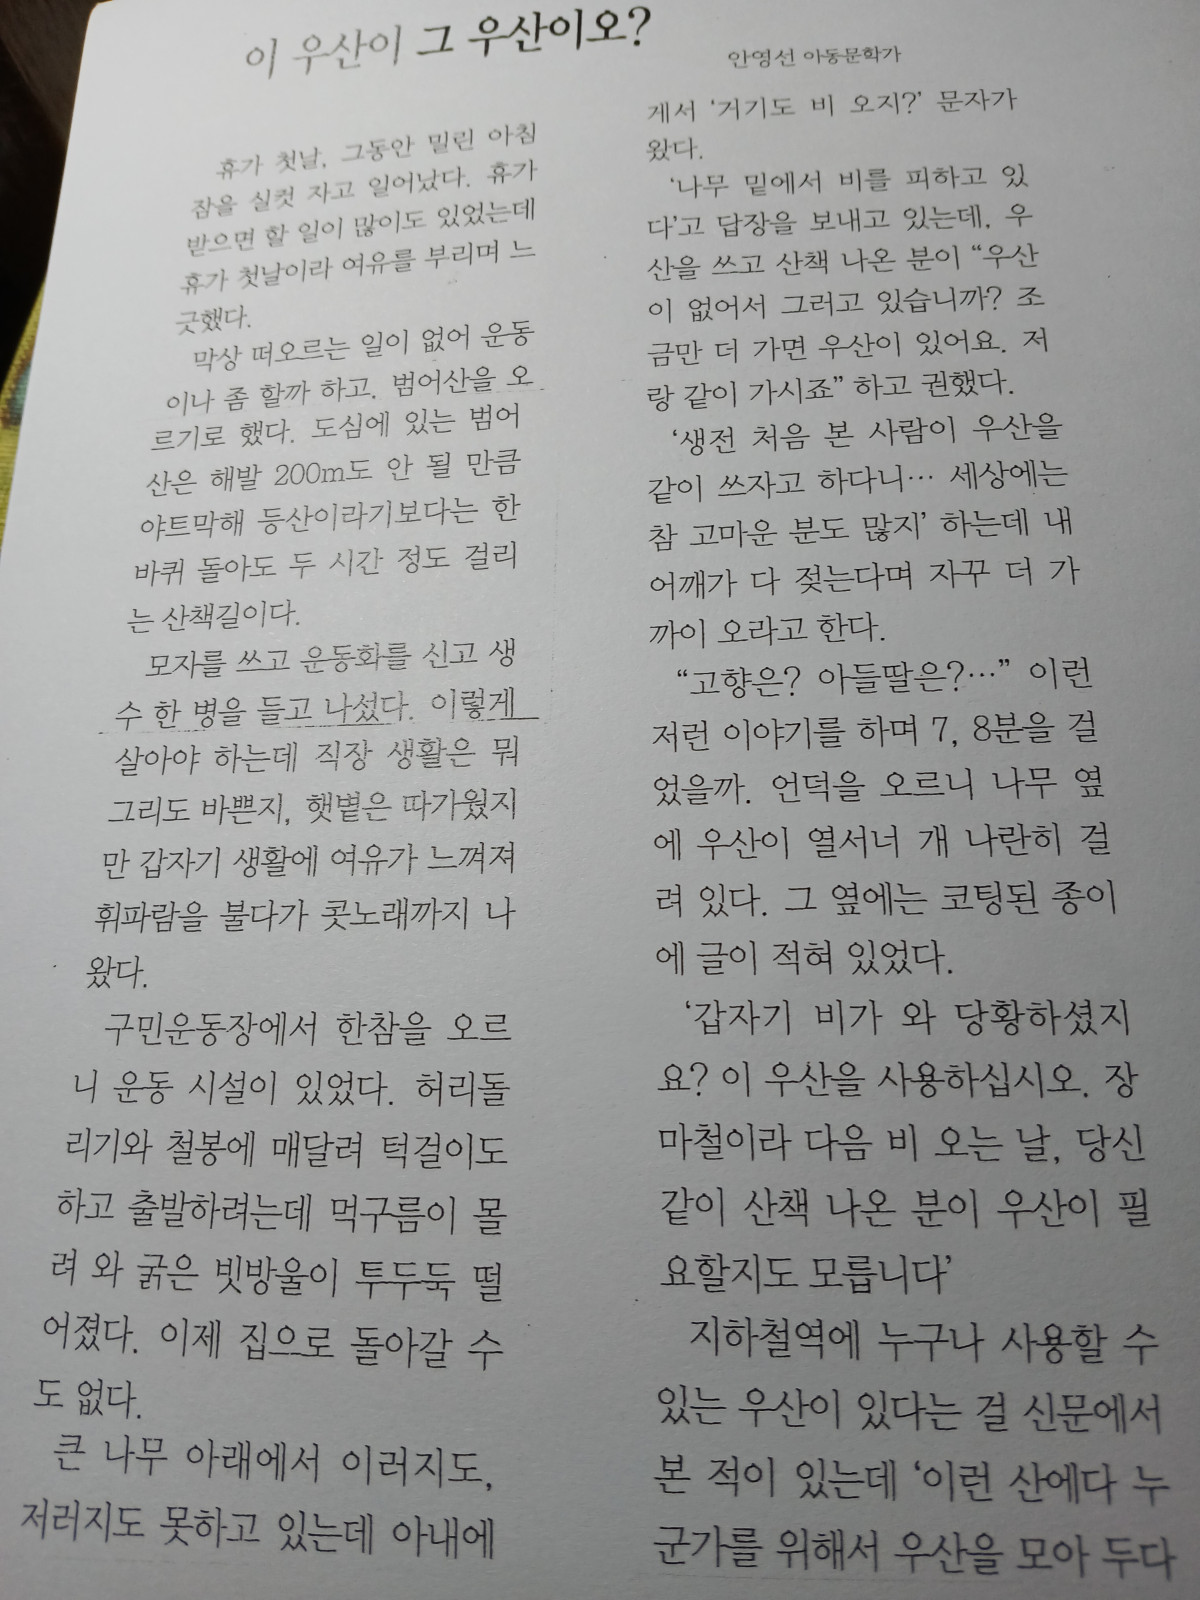 이 우산이 그 우산이오?
안영선 아동문학가
휴가 첫날, 그동안 밀린 아침
잠을 실컷 자고 일어났다. 휴가
받으면 할 일이 많이도 있었는데
휴가 첫날이라 여유를 부리며 느
긋했다.
막상 떠오르는 일이 없어 운동
이나 좀 할까 하고, 범어산을 오
르기로 했다. 도심에 있는 범어
산은 해발 200m도 안 될 만큼
야트막해 등산이라기보다는 한
바퀴 돌아도 두 시간 정도 걸리
는 산책길이다.
모자를 쓰고 운동화를 신고 생
수 한 병을 들고 나섰다. 이렇게
살아야 하는데 직장 생활은 뭐
그리도 바쁜지, 햇볕은 따가웠지
만 갑자기 생활에 여유가 느껴져
휘파람을 불다가 콧노래까지 나
왔다.
구민운동장에서 한참을 오르
니 운동 시설이 있었다. 허리돌
리기와 철봉에 매달려 턱걸이도
하고 출발하려는데 먹구름이 몰
려 와 굵은 빗방울이 투두둑 떨
어졌다. 이제 집으로 돌아갈 수
도 없다.
큰 나무 아래에서 이러지도,
저러지도 못하고 있는데 아내에
게서 '거기도 비 오지?' 문자가
왔다.
'나무 밑에서 비를 피하고 있
다'고 답장을 보내고 있는데, 우
산을 쓰고 산책 나온 분이 "우산
이 없어서 그러고 있습니까? 조
금만 더 가면 우산이 있어요. 저
랑 같이 가시죠" 하고 권했다.
'생전 처음 본 사람이 우산을
같이 쓰자고 하다니… 세상에는
참 고마운 분도 많지' 하는데 내
어깨가 다 젖는다며 자꾸 더 가
까이 오라고 한다.
"고향은? 아들딸은?…" 이런
저런 이야기를 하며 7, 8분을 걸
었을까. 언덕을 오르니 나무 옆
에 우산이 열서너 개 나란히 걸
려 있다. 그 옆에는 코팅된 종이
에 글이 적혀 있었다.
'갑자기 비가 와 당황하셨지
요? 이 우산을 사용하십시오. 장
마철이라 다음 비 오는 날, 당신
같이 산책 나온 분이 우산이 필
요할지도 모릅니다'
지하철역에 누구나 사용할 수
있는 우산이 있다는 걸 신문에서
본 적이 있는데 '이런 산에다 누
군가를 위해서 우산을 모아 두다